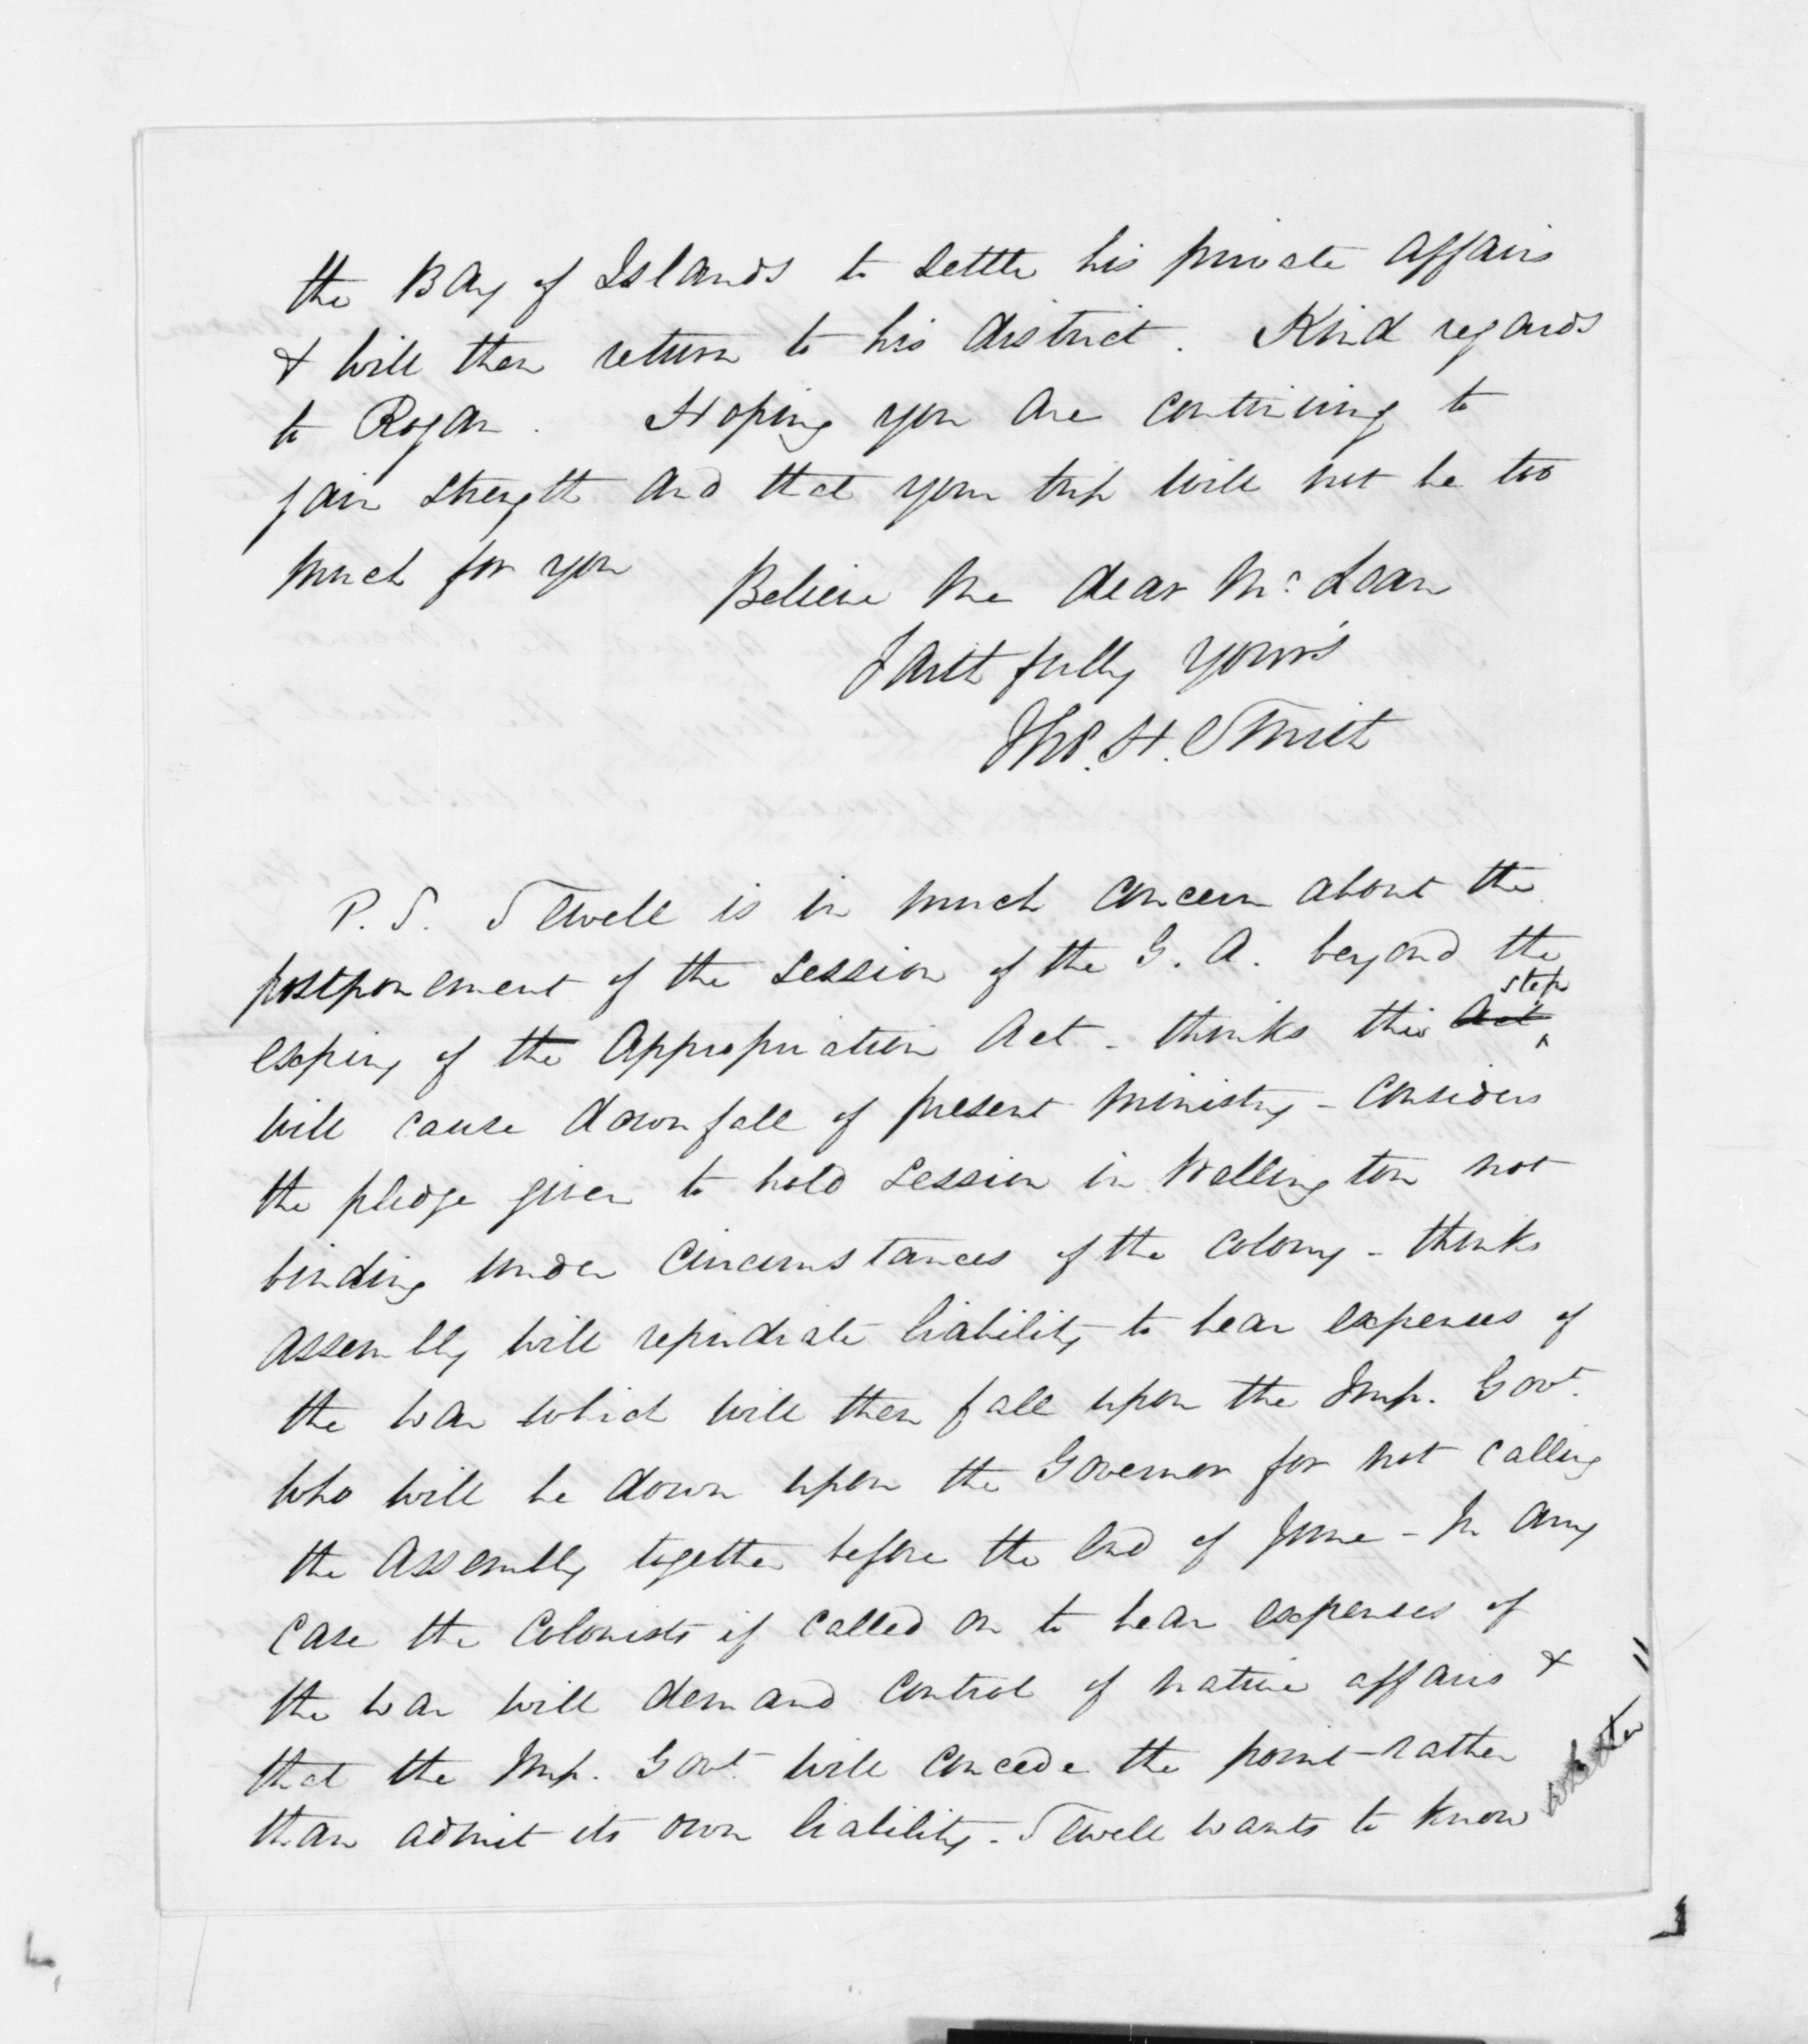 the Bay of Islands to settle his private affairs
& will then return to his district. Kind regards
to Rogan. Hoping you are continuing to
gain strength and that your trip will not be too
much for you
Believe me dear McLean
Faithfully yours
Thos. H. Smith
P.S. Sewell is in much concern about the
postponement of the session of the G. A. beyond the
expiry of the Appropriation Act - thinks this Act step
will cause downfall of present ministry - considers
the pledge given to hold session in Wellington not
binding under circumstances of the colony - thinks
Assembly will repudiate liability to bear expenses of
the war which will then fall upon the Imp. Govt.
who will be down upon the Governor for not calling
the Assembly together before the end of June - In any
case the Colonists if called on to bear expenses of
the war will demand control of native affairs &
that the Imp. Govt. will concede the point - rather
than admit its own liability. Sewell wants to know
whether "